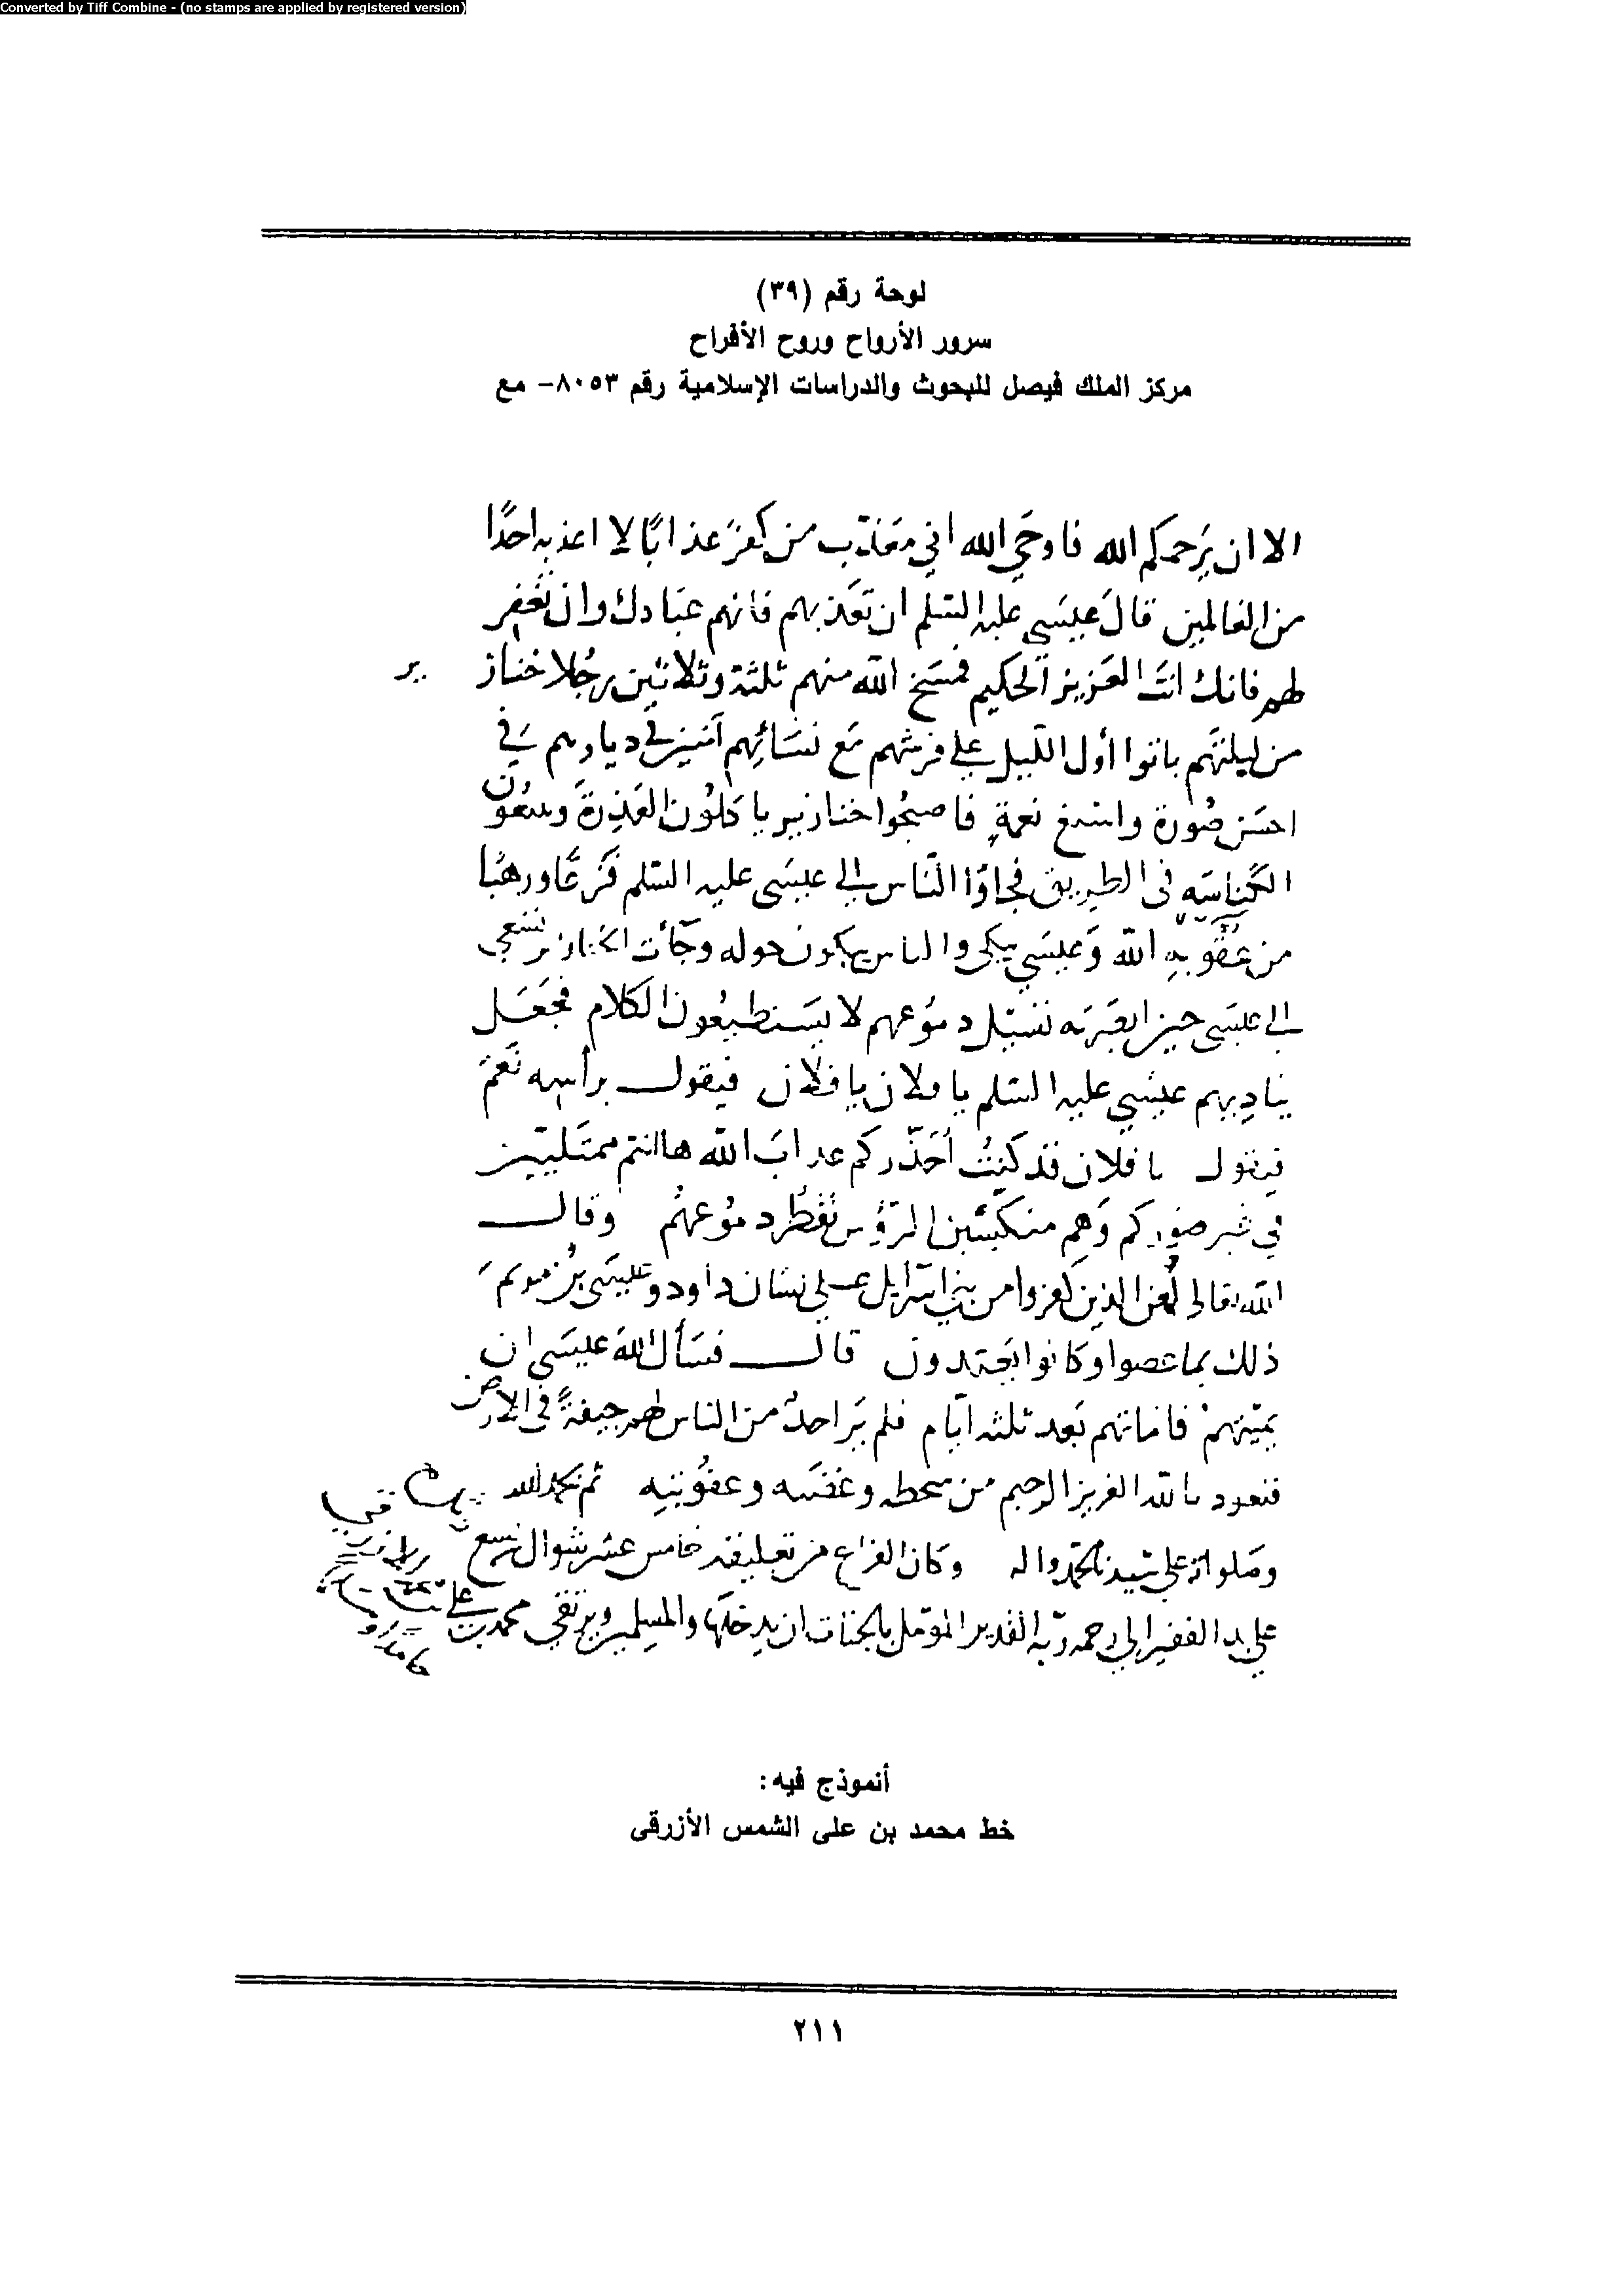 Converted by Tiff Combine - (no stamps are applied by registered version)
لوحة رقم (٣٩)
سرور الأرواح وروح الأفراح
مركز الملك فيصل للبحوث والدراسات الإسلامية رقم ٨٠٥٣- مع
الا ان يَرحمكم الله فاوحَي الله اني مَعَذّب من كفرَ عَذابًا لا اعذبه احدًا
من العالمين قالَ عيسَى عليه السّلم ان تعَذبهم فانهم عبَادك وان تغفِر
لهم فانك انتَ العَزيز الحكيم فمسَخ الله منهم ثلثة وثلاثين رجُلا خناز ير
من ليلتهم باتوا أول اللّيل علي فرشهم مَع نسَائِهم آمنين في ديارهم في
احسَن صُورة واسبغ نعمةٍ فاصبحُوا خنازير ياكلُون العَذِرةَ ويتبعُون
الكُناسَه في الطريق فجاؤا النّاس الي عيسَى عليه السّلم فزعًا ورهبًا
من عقُوبةِ الله وَعيسَي يبكي والناس يبكون حوله وجَآت الخنازير تسعي
الي عيسَى حين ابصَرته تسيل دموُعهم لا يسَتطيعُون الكلام فجعَل
يناديهم عيسَي عليه السّلم يا فلان يا فلان فيقول برأسِه نَعَم
فيقول يا فلان قد كنتُ أحَذّركم عذابَ الله هاانتم ممثلين
في شر صُوركم وَهم منكسّين الرّؤس تقطُر دموُعهُم وقال
الله تعالى لُعن الذين كفروا من بني اسرآيل علي لسَان داود وعيسَى بن مريم
ذلك بما عصوا وكانوا يعَتدون قال فسَأل اللهَ عيسَى ان
يميتهمْ فاماتهم بَعد ثلثه ايّام فلم يَر احدٌ من الناس لهم جيفةً في الارض
فنعوذ بالله العزيز الرحيم من سخطه وغضبه وعقوُبته
وصَلواته علي سَيدنا محمّد واله وكان الفراغ من تعليقه خامس عشر شوال تسع
علي يد الفقير الي رحمه ربّه القدير المؤمّل بالجنات ان يدخلها والمسلمين ويرتقي محمد بن علي
أنموذج فيه:
خط محمد بن على الشمس الأزرقى
٢١١